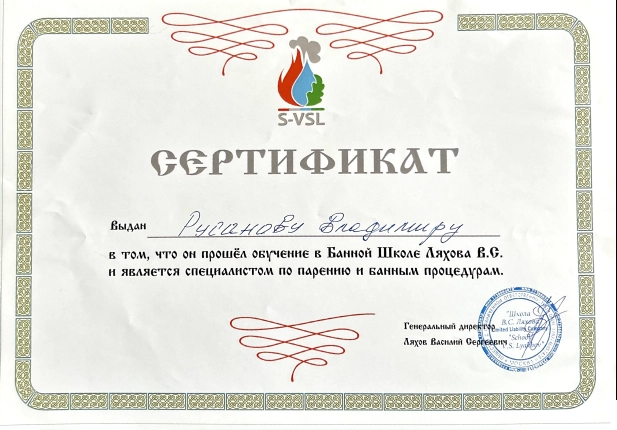 S-VSL
СЕРТИФИКАТ
Выдан Русанову Владимиру
в том, что он прошёл обучение в Банной Школе Ляхова В.С.
и является специалистом по парению и банным процедурам.
Генеральный директор
Ляхов Василий Сергеевич
"Школа
В.С. Ляхова"
Limited Liability Company
"School
V.S. Lyahov"